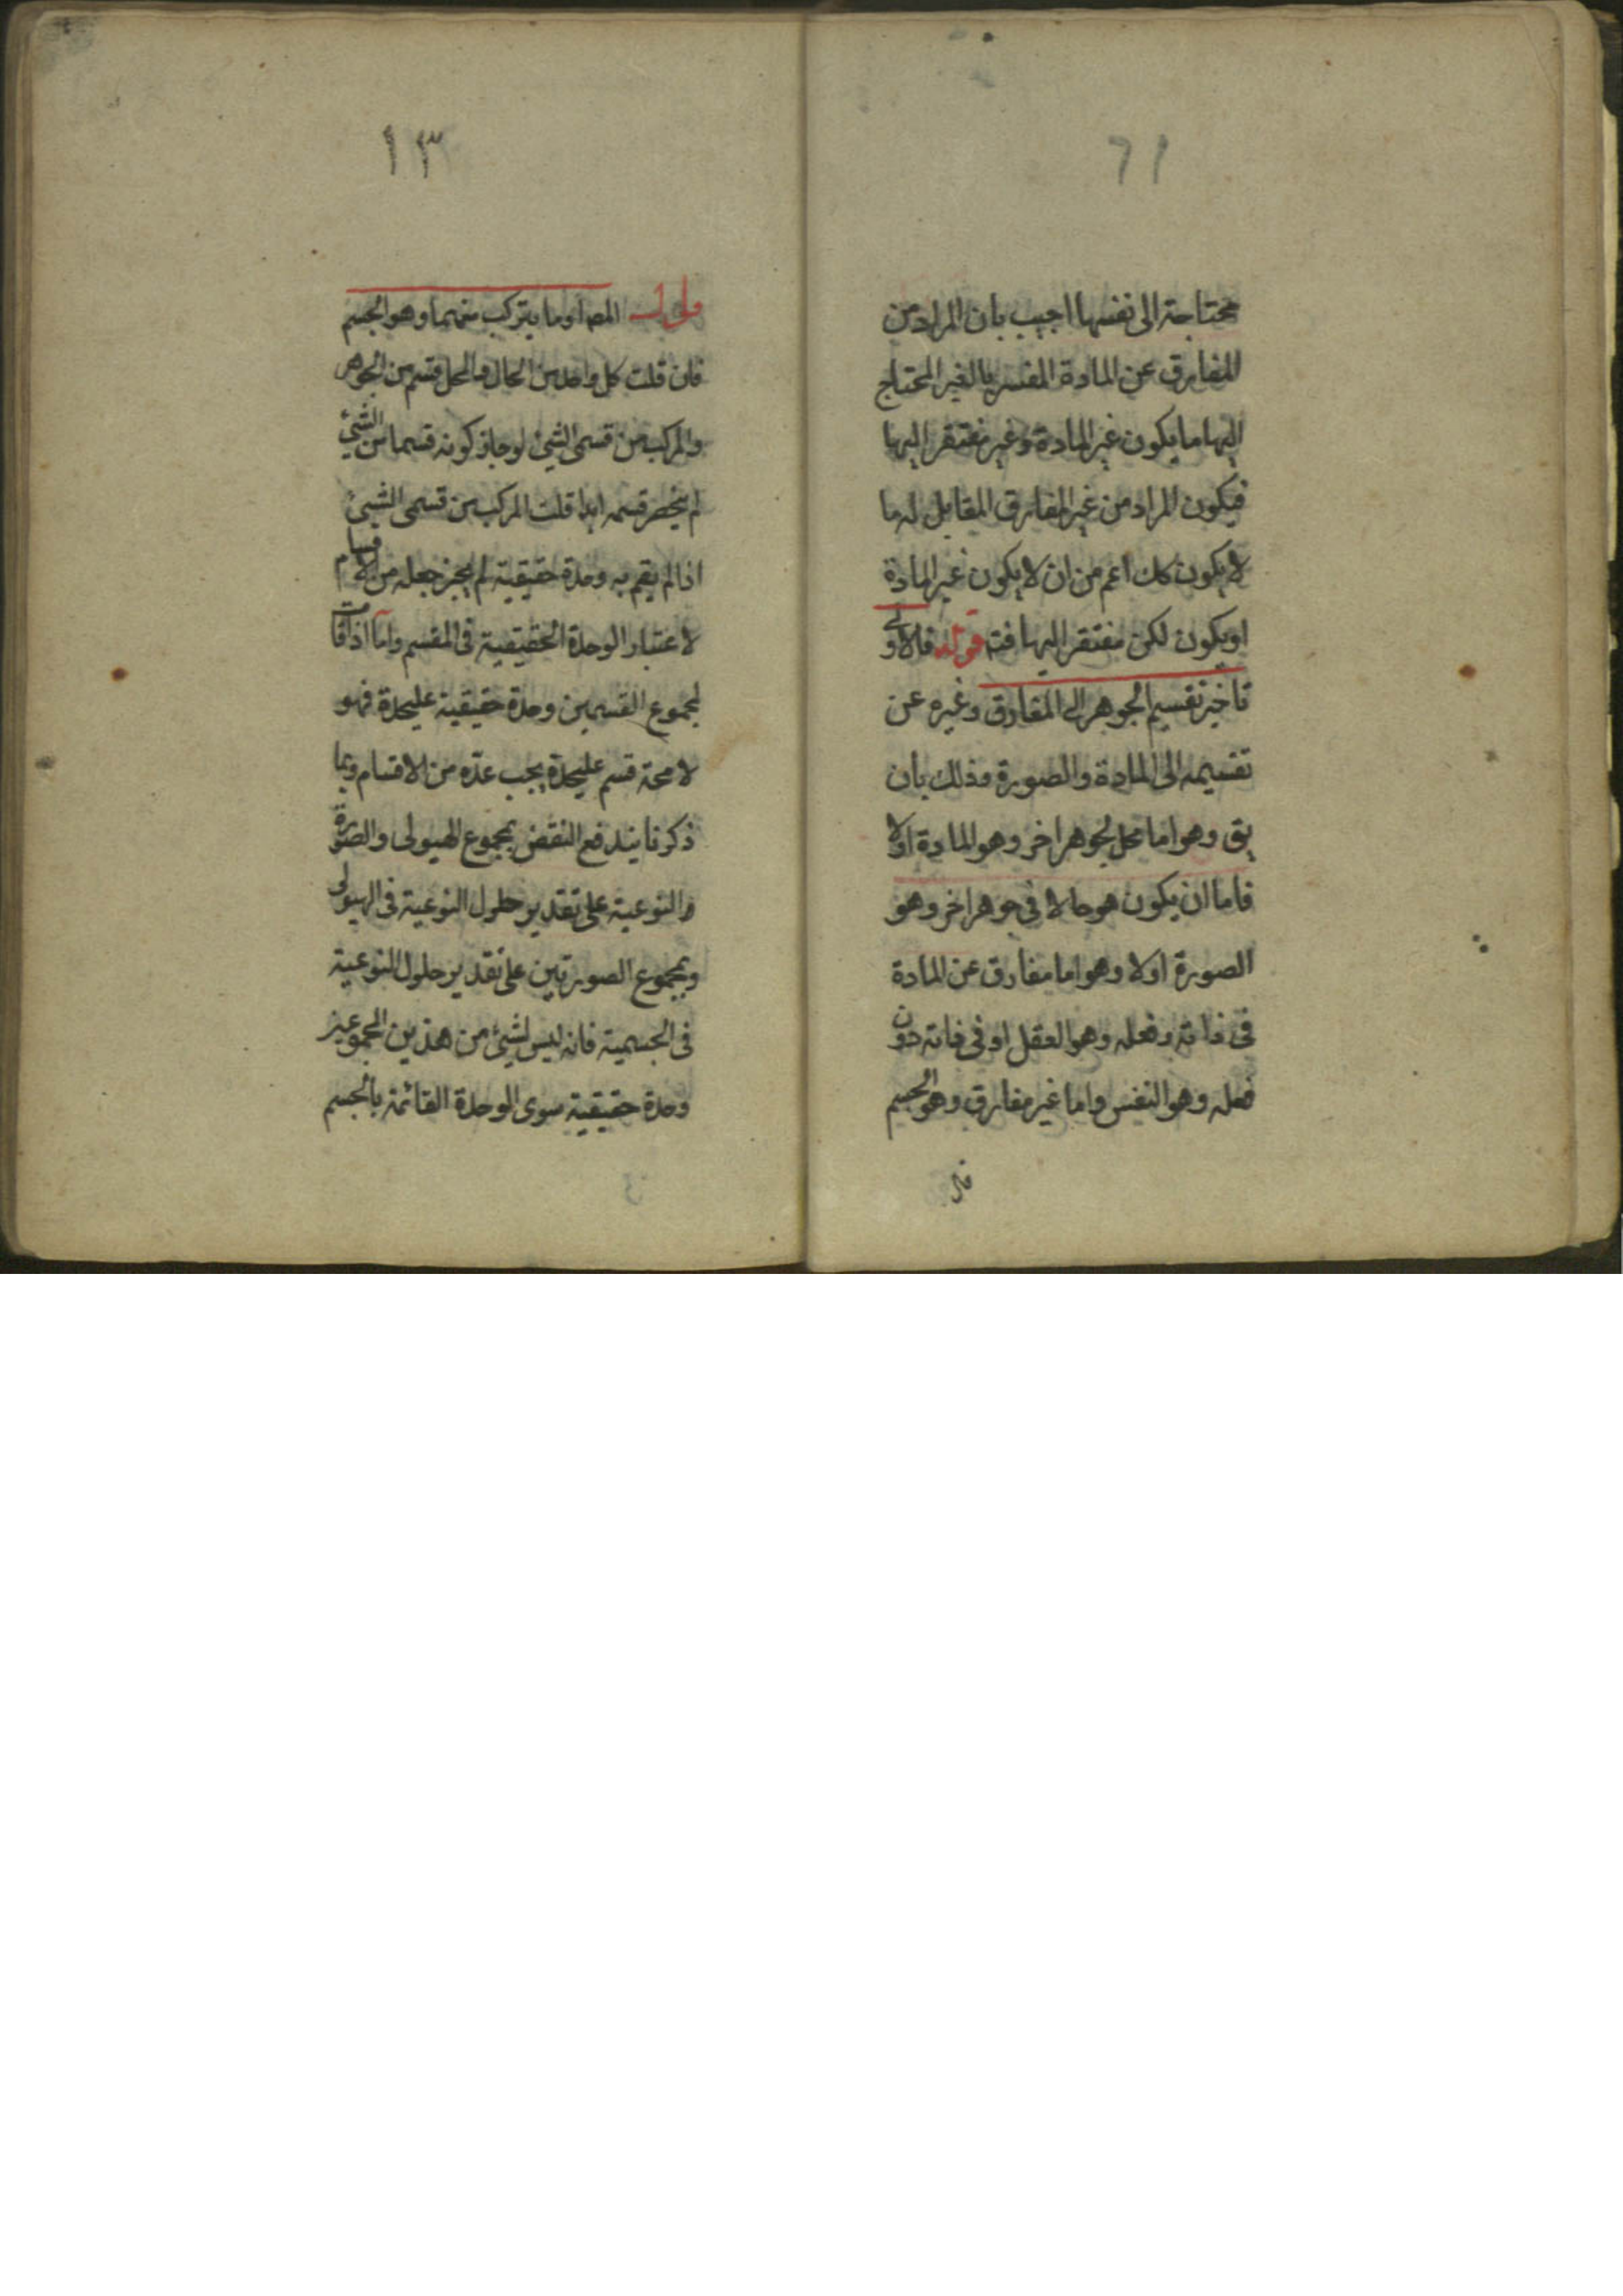 ١٢
محتاجة الى نفسها اجيب بان المراد من
المفارق عن المادة المفسر بالغير المحتاج
اليها ما يكون غير المادة وغير مفتقر اليها
فيكون المراد من غير المفارق المقابل له ما
لا يكون كك اعم من ان لا يكون غير المادة
او يكون لكن مفتقر اليها فتم قوله فالاولى
تاخير تقسيم الجوهر الى المفارق وغيره عن
تقسيمه الى المادة والصورة وذلك بان
يق وهو اما محل لجوهر اخر وهو المادة اولا
فاما ان يكون هو حالا في جوهر اخر وهو
الصورة اولا وهو اما مفارق عن المادة
في ذاته وفعله وهو العقل او في ذاته دون
فعله وهو النفس واما غير مفارق وهو الجسم
١٣
قوله المص او ما يتركب منهما وهو الجسم
فان قلت كل واحد من الحال والمحل قسم من الجوهر
والمركب من قسمى الشيئ لو جاز كونه قسما من الشيئ
لم ينحصر قسمه ابدا قلت المركب من قسمى الشيئ
اذا لم يقم به وحدة حقيقية لم يجز جعله من الاقسام
لاعتبار الوحدة الحقيقية فى المقسم واما اذا قامت
لمجموع القسمين وحدة حقيقية عليحدة فهو
لا محة قسم عليحدة يجب عده من الاقسام وبما
ذكرنا يندفع النقض بمجموع الهيولى والصورة
والنوعية على تقدير حلول النوعية فى الهيولى
وبمجموع الصورتين على تقدير حلول النوعية
فى الجسمية فانه ليس لشيئ من هذين المجموعين
وحدة حقيقية سوى الوحدة القائمة بالجسم